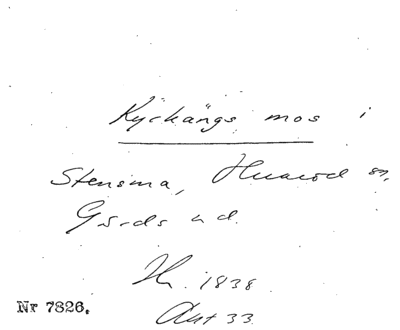 Kyckängs mos i
Stensma, Huaröd sn,
Gärds hd.
Hn. 1838
Akt 33.
Nr 7826.